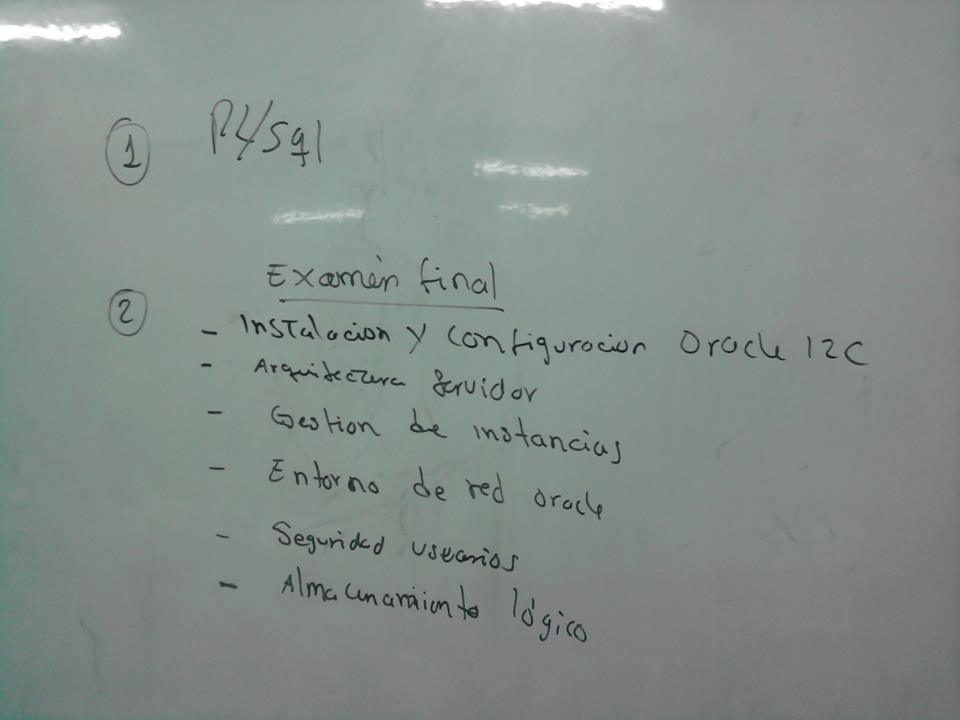 1 PL/Sql
Examén final
2
- Instalacion y configuracion Oracle 12C
- Arquitectura Servidor
- Gestion de instancias
- Entorno de red oracle
- Seguridad usuarios
- Almacenamiento lógico